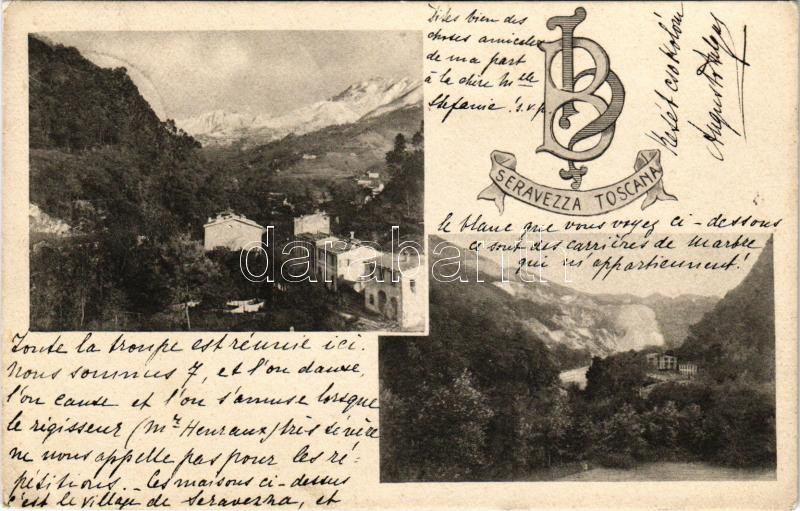 Toute la troupe est réunie ici.
Nous sommes 7, et l'on danse,
l'on cause et l'on s'amuse lorsque
le régisseur (Mr Henraux) très sévère
ne nous appelle pas pour les ré-
pétitions. – Les maisons ci-dessus
c'est le village de Seravezza, et
le blanc que vous voyez ci-dessous
ce sont des carrières de Marbre
qui m'appartiennent!
Dites bien des
choses amicales
de ma part
à la chère Mlle
Stefanie s.v.p.
Kezét csokolom
SERAVEZZA TOSCANA
darabanth